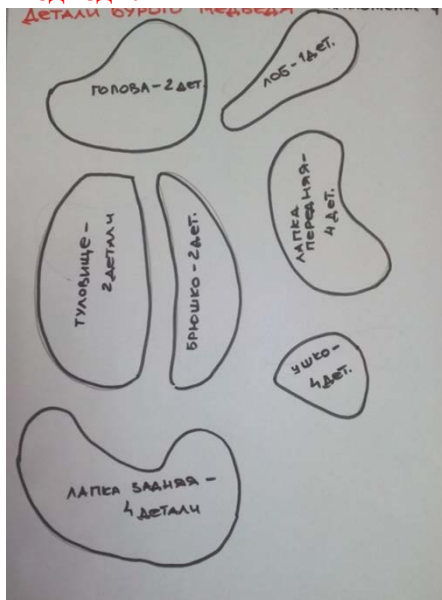 ДЕТАЛИ БУРОГО МЕДВЕДЯ
ГОЛОВА - 2 ДЕТ.
ЛОБ - 1 ДЕТ.
ТУЛОВИЩЕ -
2 ДЕТАЛИ
БРЮШКО - 2 ДЕТ.
ЛАПКА
ПЕРЕДНЯЯ -
4 ДЕТ.
УШКО -
4 ДЕТ.
ЛАПКА ЗАДНЯЯ -
4 ДЕТАЛИ